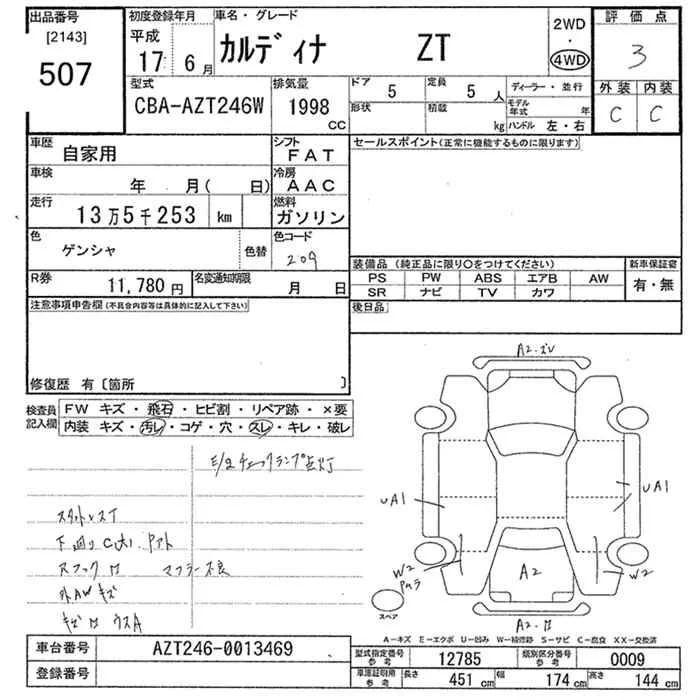 出品番号 初度登録年月 車名・グレード 2WD 評価点
[2143] 平成 カルディナ ZT ・ 3
507 17 6月 4WD
外装 内装
型式 排気量 ドア 5 定員 5人 ディーラー・並行 C C
CBA-AZT246W 1998 CC 形状 積載 kg モデル年式 年
ハンドル 左・右
車歴 自家用 シフト FAT セールスポイント(正常に機能するものに限ります)
車検 年 月( 日) 冷房 AAC
走行 13万5千253 km 燃料 ガソリン
色 ゲンシャ 色替 色コード 209
装備品 (純正品に限り○をつけてください) 新車保証書
PS PW ABS エアB AW 有・無
SR ナビ TV カワ
R券 11,780円 名変通知期限 月 日
後日品
注意事項申告欄(不具合内容等は具体的に記入して下さい)
修復歴 有〔箇所 〕
検査員記入欄 FW キズ・飛石・ヒビ割・リペア跡・×要
内装 キズ・汚レ・コゲ・穴・スレ・キレ・破レ
チェックランプ点灯
下回り C(大)
マフラー不良
外AWキズ
A2・ズレ
UA1 UA1
W2 W2
A2
スペア
A-キズ E-エクボ U-凹み W-補修跡 S-サビ C-腐食 XX-交換済
車台番号 AZT246-0013469
登録番号
型式指定番号 参考 12785 類別区分番号 参考 0009
車庫証明用 参考 長さ 451cm 幅 174cm 高さ 144cm